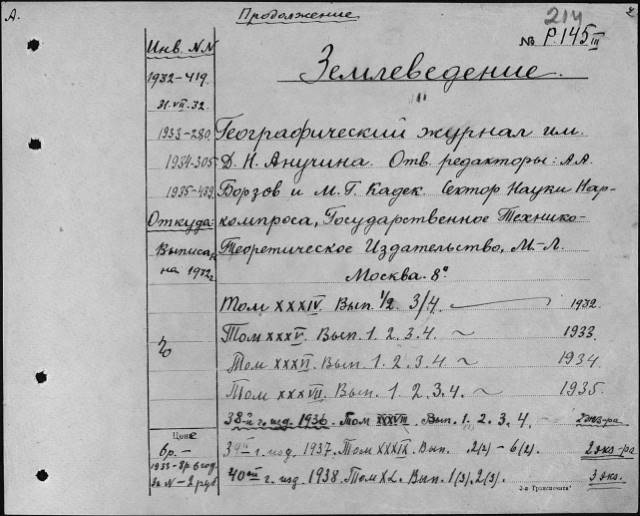 А. Продолжение 214
№ Р.145 III
Инв. NN
1932-419.
31.VII.32.
1933-280
1934-305
1935-439
Откуда:
Выписан
на 1932г
Цена
6р. —
1933-8р. 6 год
за N-2 руб
Землеведение
Географический журнал им.
Д. Н. Анучина. Отв. редакторы: А.А.
Борзов и М. Г. Кадек Сектор Науки Нар-
компроса, Государственное Технико-
Теоретическое Издательство, М.-Л.
Москва. 8°
Том XXXIV. Вып. 1/2. 3/4. 1932.
Том XXXV. Вып. 1. 2. 3. 4. ~ 1933.
Том XXXVI. Вып. 1. 2. 3. 4. ~ 1934.
Том XXXVII. Вып. 1. 2. 3. 4. ~ 1935.
38-й г. изд. 1936. Том XXXVIII. Вып. 1. 2. 3. 4. - 2 экз-ра
39й г. изд. 1937. Том XXXIX. Вып. 2(2) - 6(2). 2 экз-ра
40й г. изд. 1938. Том XL. Вып. 1(3). 2(3). 3 экз.